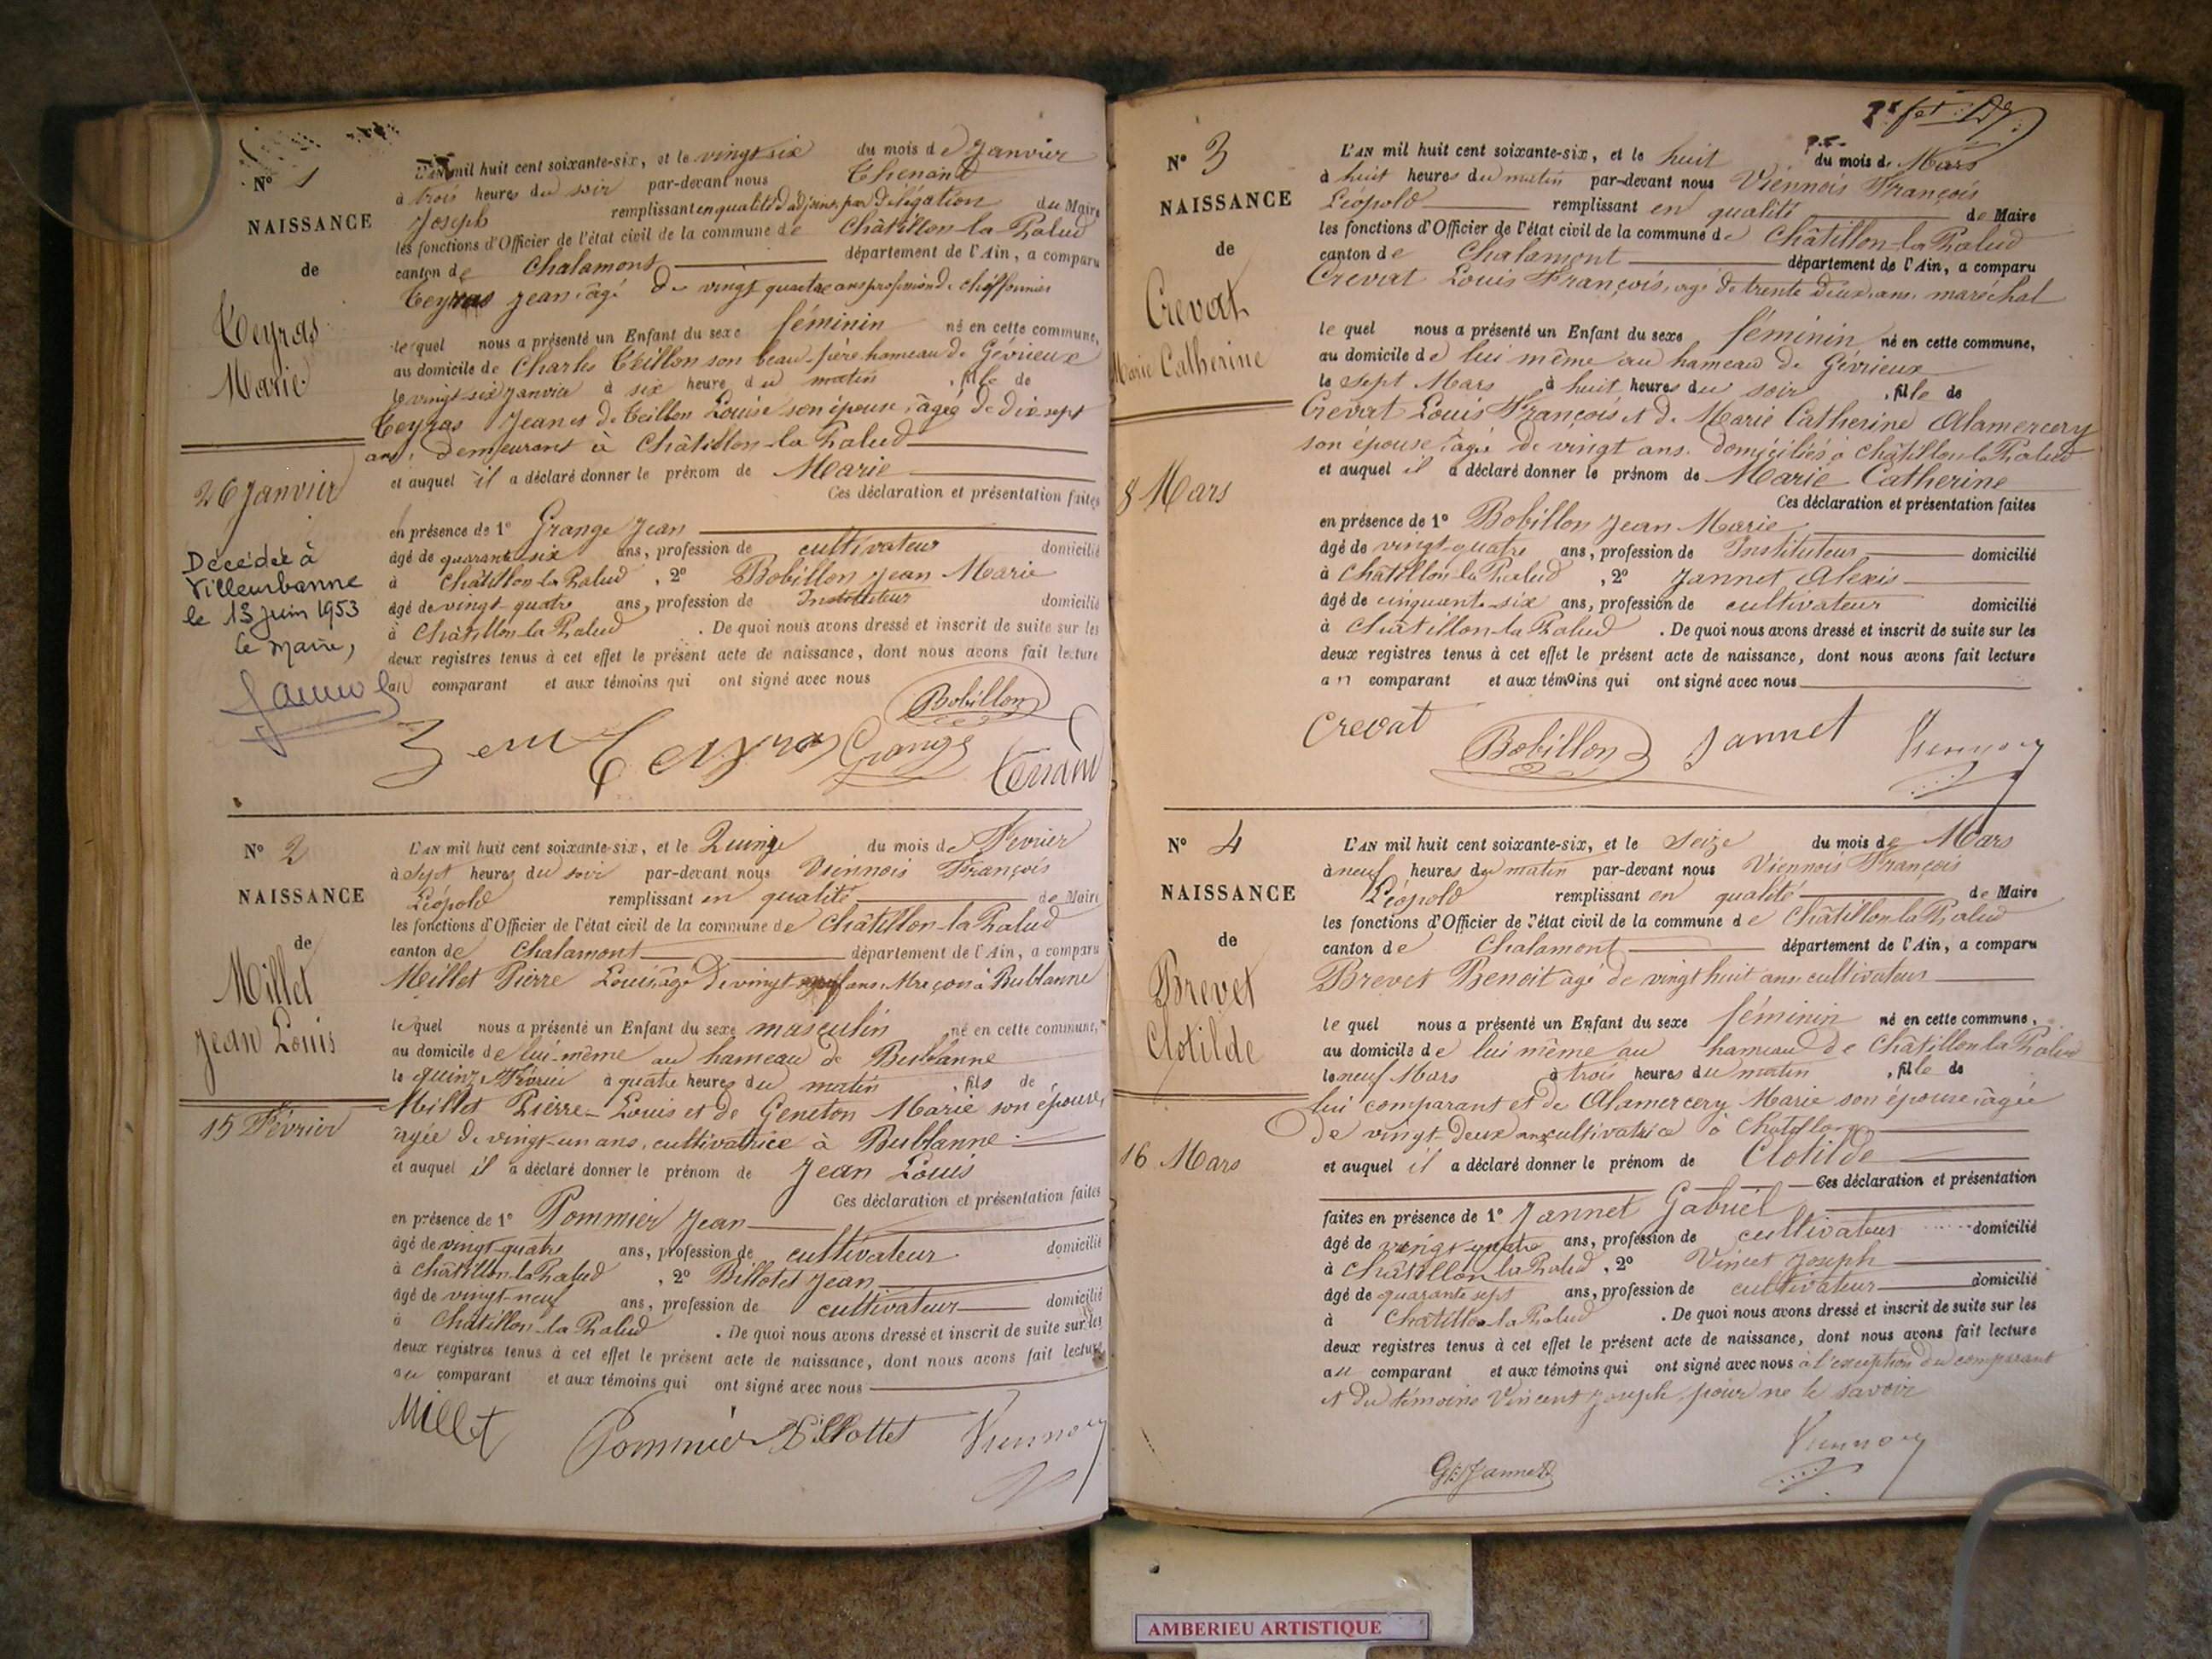 N° 1
NAISSANCE
de
Teyras
Marie
26 Janvier
Décédée à
Villeurbanne
le 13 juin 1953
Le Maire,
L'AN mil huit cent soixante-six, et le vingt six du mois de Janvier
à trois heures du soir par-devant nous Thenand
Joseph remplissant en qualité d'adjoint par délégation du Maire
les fonctions d'Officier de l'état civil de la commune de Châtillon-la-Palud
canton de Chalamont département de l'Ain, a comparu
Teyras Jean âgé de vingt quatre ans profession de chiffonnier
lequel nous a présenté un Enfant du sexe féminin né en cette commune,
au domicile de Charles Teillon son beau-père hameau de Gévrieux
le vingt-six Janvier à six heure du matin, fille de
Teyras Jean et de Teillon Louise son épouse, âgée de dix sept
ans, demeurant à Châtillon-la-Palud
et auquel il a déclaré donner le prénom de Marie
Ces déclaration et présentation faites
en présence de 1° Grange Jean
âgé de quarante six ans, profession de cultivateur domicilié
à Châtillon-la-Palud, 2° Bobillon Jean Marie
âgé de vingt-quatre ans, profession de Instituteur domicilié
à Châtillon-la-Palud. De quoi nous avons dressé et inscrit de suite sur les
deux registres tenus à cet effet le présent acte de naissance, dont nous avons fait lecture
au comparant et aux témoins qui ont signé avec nous
Bobillon
Teyras Grange
N° 2
NAISSANCE
de
Millet
Jean Louis
15 Février
L'AN mil huit cent soixante-six, et le Quinze du mois de Février
à sept heures du soir par-devant nous Viennois François
Léopold remplissant en qualité de Maire
les fonctions d'Officier de l'état civil de la commune de Châtillon-la-Palud
canton de Chalamont département de l'Ain, a comparu
Millet Pierre Louis âgé de vingt-neuf ans Maçon à Bublanne
lequel nous a présenté un Enfant du sexe masculin né en cette commune,
au domicile de lui-même au hameau de Bublanne
le quinze Février à quatre heures du matin, fils de
Millet Pierre-Louis et de Geneton Marie son épouse,
âgée de vingt-un ans, cultivatrice à Bublanne
et auquel il a déclaré donner le prénom de Jean Louis
Ces déclaration et présentation faites
en présence de 1° Pommier Jean
âgé de vingt-quatre ans, profession de cultivateur domicilié
à Châtillon-la-Palud, 2° Billotet Jean
âgé de vingt-neuf ans, profession de cultivateur domicilié
à Châtillon-la-Palud. De quoi nous avons dressé et inscrit de suite sur les
deux registres tenus à cet effet le présent acte de naissance, dont nous avons fait lecture
au comparant et aux témoins qui ont signé avec nous
Millet Pommier Billottet Viennois
N° 3
NAISSANCE
de
Crevat
Marie Catherine
8 Mars
L'AN mil huit cent soixante-six, et le huit du mois de Mars
à huit heures du matin par-devant nous Viennois François
Léopold remplissant en qualité de Maire
les fonctions d'Officier de l'état civil de la commune de Châtillon-la-Palud
canton de Chalamont département de l'Ain, a comparu
Crevat Louis François, âgé de trente deux ans, maréchal
lequel nous a présenté un Enfant du sexe féminin né en cette commune,
au domicile de lui même au hameau de Gévrieux
le sept Mars à huit heures du soir, fille de
Crevat Louis François et de Marie Catherine Alamercery
son épouse, âgée de vingt ans. domiciliés à Châtillon-la-Palud
et auquel il a déclaré donner le prénom de Marie Catherine
Ces déclaration et présentation faites
en présence de 1° Bobillon Jean Marie
âgé de vingt-quatre ans, profession de Instituteur domicilié
à Châtillon-la-Palud, 2° Jannet Alexis
âgé de cinquante-six ans, profession de cultivateur domicilié
à Châtillon-la-Palud. De quoi nous avons dressé et inscrit de suite sur les
deux registres tenus à cet effet le présent acte de naissance, dont nous avons fait lecture
au comparant et aux témoins qui ont signé avec nous
Crevat Bobillon Jannet Viennois
N° 4
NAISSANCE
de
Brevet
Clotilde
16 Mars
L'AN mil huit cent soixante-six, et le seize du mois de Mars
à neuf heures du matin par-devant nous Viennois François
Léopold remplissant en qualité de Maire
les fonctions d'Officier de l'état civil de la commune de Châtillon-la-Palud
canton de Chalamont département de l'Ain, a comparu
Brevet Benoit âgé de vingt huit ans cultivateur
lequel nous a présenté un Enfant du sexe féminin né en cette commune,
au domicile de lui même au hameau de Châtillon la Palud
le neuf Mars à trois heures du matin, fille de
lui comparant et de Alamercery Marie son épouse, âgée
de vingt-deux ans cultivatrice à Chatillon
et auquel il a déclaré donner le prénom de Clotilde
Ces déclaration et présentation
faites en présence de 1° Jannet Gabriel
âgé de vingt quatre ans, profession de cultivateur domicilié
à Châtillon la Palud, 2° Vincent Joseph
âgé de quarante sept ans, profession de cultivateur domicilié
à Châtillon-la-Palud. De quoi nous avons dressé et inscrit de suite sur les
deux registres tenus à cet effet le présent acte de naissance, dont nous avons fait lecture
au comparant et aux témoins qui ont signé avec nous à l'exception du comparant
et du témoin Vincent Joseph, pour ne le savoir
Jannet Viennois
AMBERIEU ARTISTIQUE